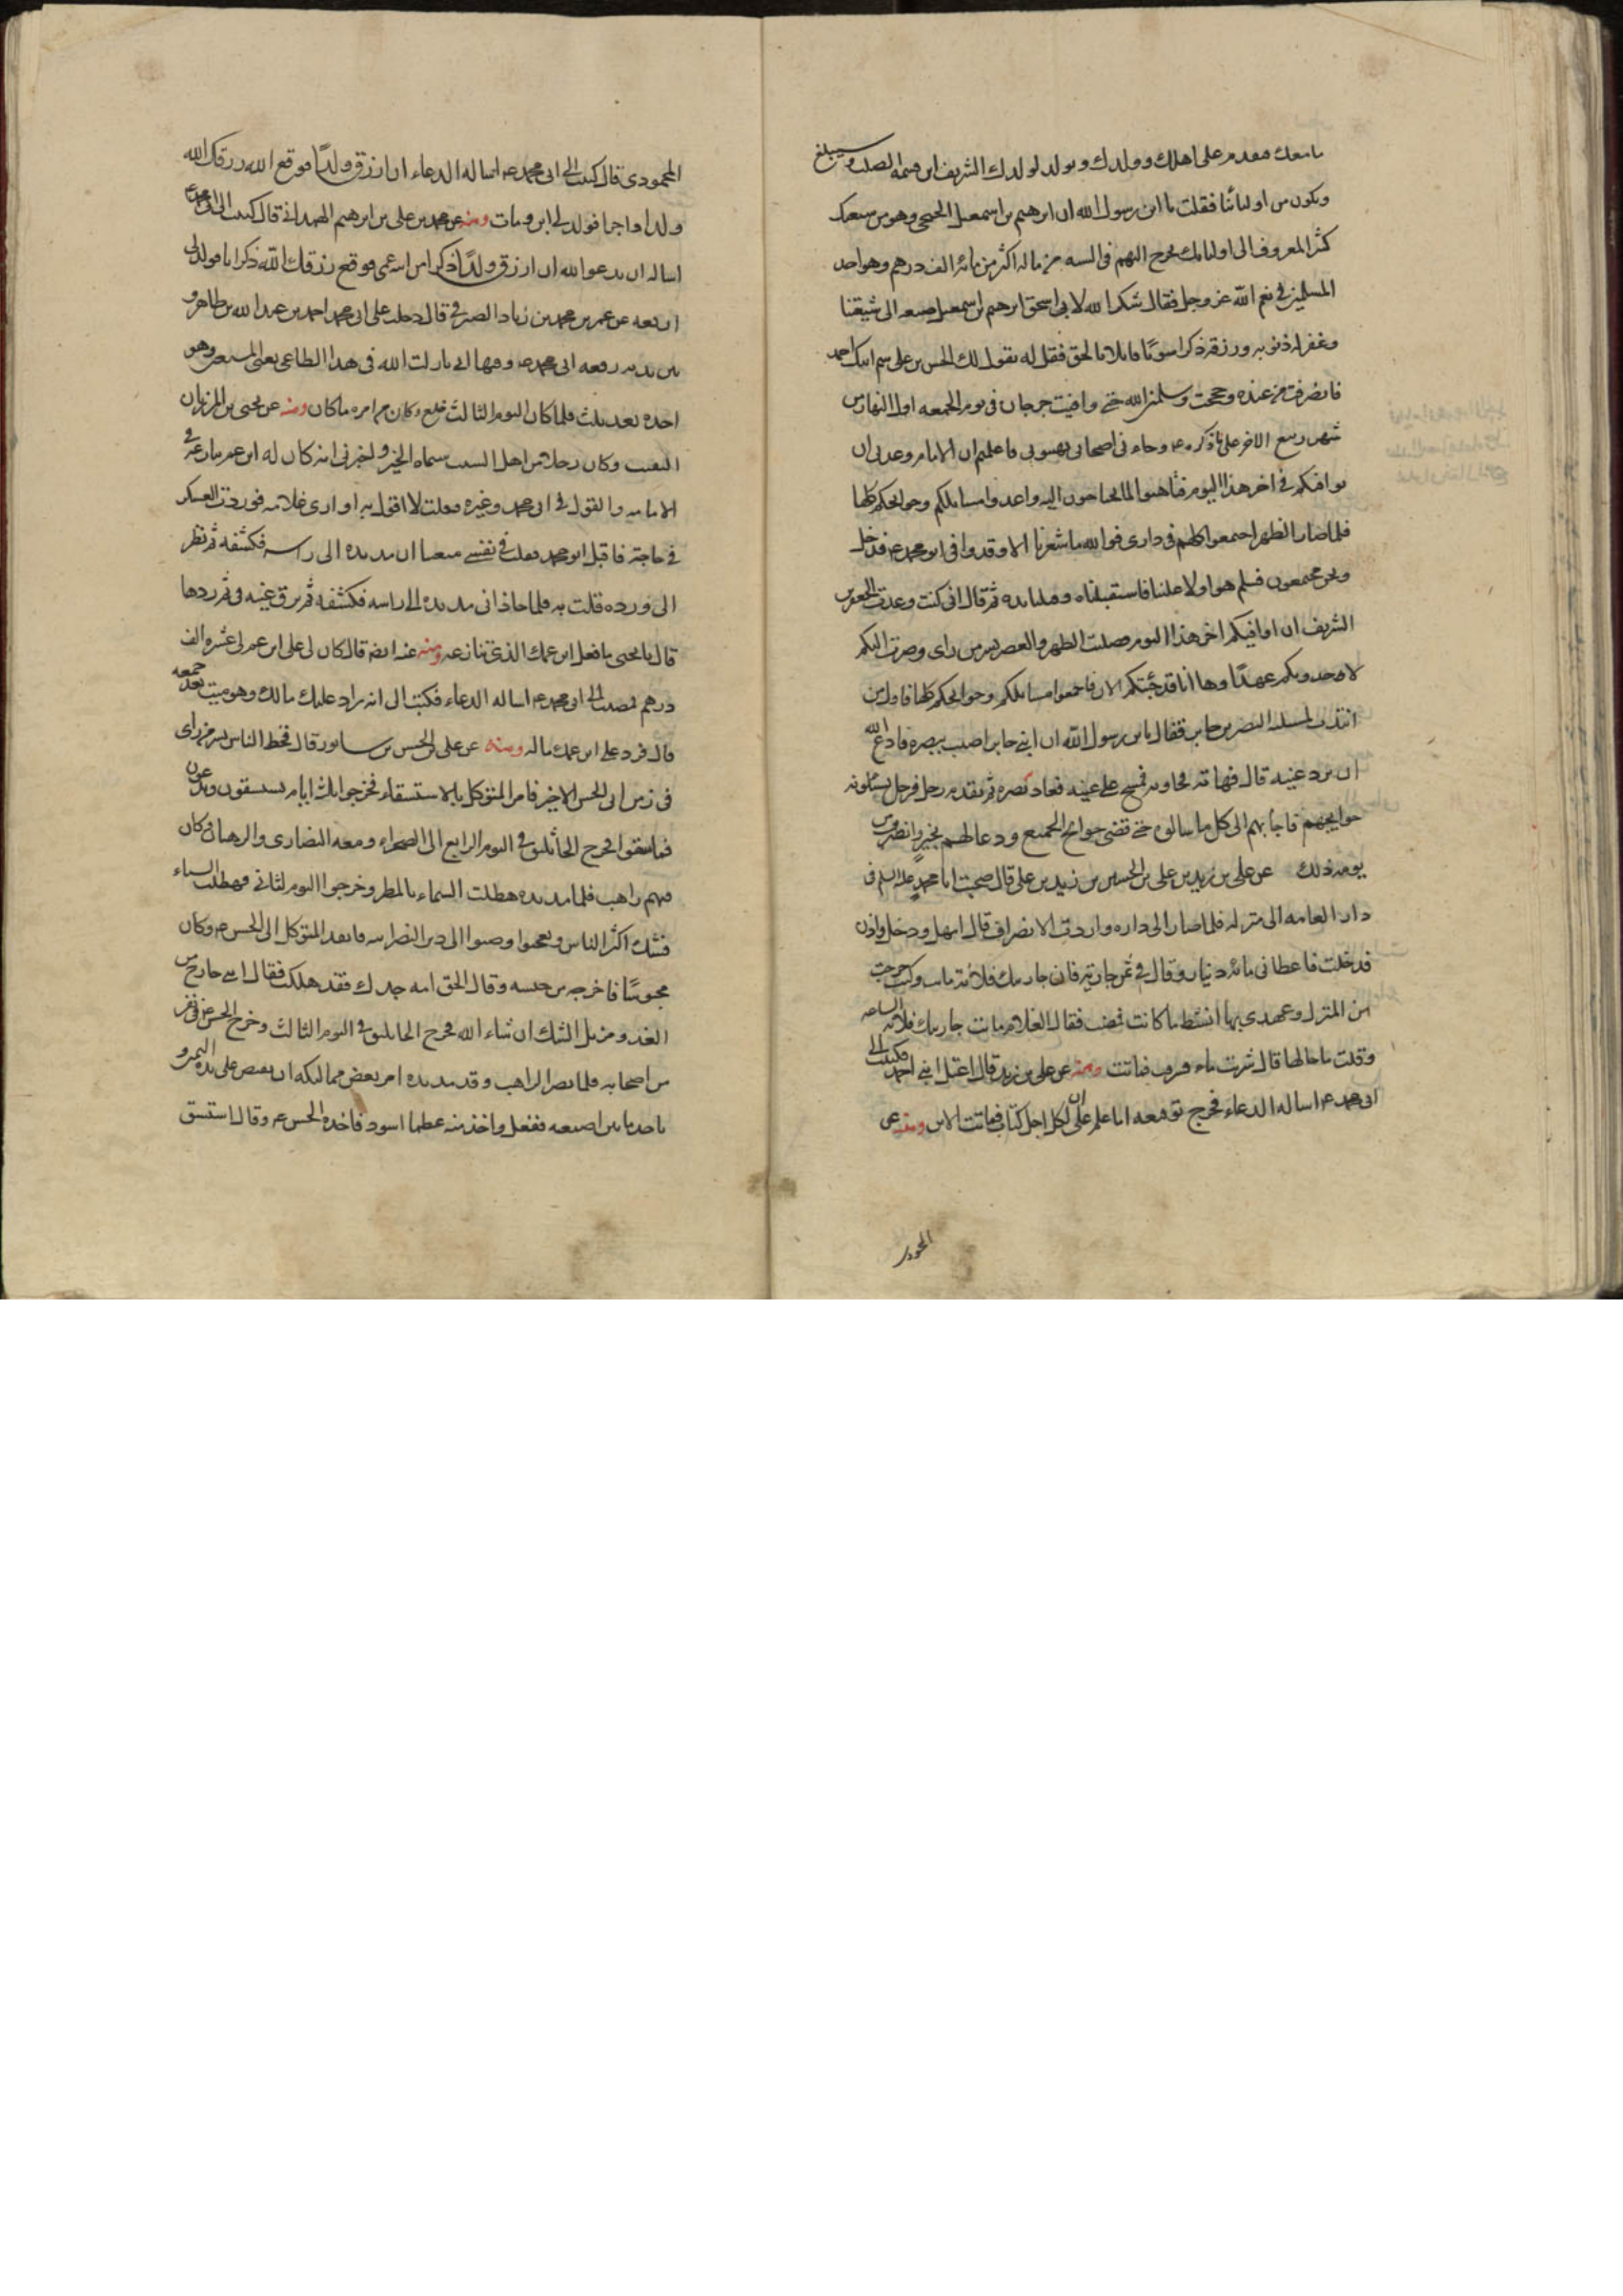 ما معك فتقدم على اهلك وولدك ويولد لولدك الشريف ابن فسمه الصلت وسيبلغ
ويكون من اوليائنا فقلت يا ابن رسول الله ان ابرهيم بن اسمعيل الجلختى وهو من شيعتك
كثير المعروف الى اوليائك يخرج اليهم فى السنه من ماله اكثر من مائة الف درهم وهو احد
المسلمين فى نعم الله عز وجل فقال شكر الله لابى اسحق ابرهيم بن اسمعيل صنيعه الى شيعتنا
وغفر له ذنوبه ورزقه ذكرا سويا قايلا بالحق فقل له يقول لك الحسن بن على سم ابنك احمد
فانصرفت من عنده وحججت وسلمنى الله حتى وافيت جرجان فى يوم الجمعه اول النهار من
شهر ربيع الاخر على ما ذكره ع وجاءنى اصحابى يهنونى فاعلمتهم ان الامام وعدنى ان
يوافيكم فى اخر هذا اليوم فتاهبوا لما تحتاجون اليه واعدوا مسائلكم وحوايجكم كلها
فلما صلوا الظهر اجتمعوا كلهم فى دارى فوالله ما شعرنا الا وقد وافى ابو محمد ع فدخل
ونحن مجتمعون فسلم هو اولا علينا فاستقبلناه وقبلنا يده ثم قال انى كنت وعدت جعفر بن
الشريف ان اوافيكم اخر هذا اليوم فصليت الظهر والعصر بسر من راى وصرت اليكم
لاجدد بكم عهدا وها انا قد جئتكم الان فاجمعوا مسائلكم وحوايجكم كلها فاول من
انتدب لمسئلته النضر بن جابر فقال يا بن رسول الله ان ابنى جابرا اصيب ببصره فادع الله
ان يرد عينيه قال فهاته فجاء به فمسح على عينيه فعاد بصره ثم تقدم رجل فرجل يسئلونه
حوايجهم فاجابهم الى كل ما سالوه حتى قضى حوائج الجميع ودعا لهم بخير وانصرف من
يومه ذلك عن على بن زيد بن على بن الحسين بن زيد بن على قال صحبت ابا محمد عليه السلم فى
دار العامه الى منزله فلما صار الى داره واردت الانصراف قال امهل ودخل واذن
فدخلت فاعطانى مائة دينار وقال فى ثمن جارية فان جاريتك فلانة ماتت وكنت خرجت
من المنزل وعهدى بها انشط ما كانت فمضيت فقال الغلام ماتت جاريتك فلانه الساعه
وقلت ما حالها قال شربت ماء فشرقت فماتت ومنه عن على بن زيد قال اعتل ابنى احمد فكتبت الى
ابى محمد ع اساله الدعاء فخرج توقيعه اما علم على ان لكل اجل كتاب فمات الابن ومنه عن
المحمودى
المحمودى قال كتبت الى ابى محمد ع اساله الدعاء ان ارزق ولدا فوقع الله رزقك الله
ولدا واجرا فولد لى ابن ومات ومنه عن محمد بن على بن ابرهيم الهمدانى قال كتبت الى ابى محمد ع
اساله ان يدعو الله ان ارزق ولدا ذكرا من ابنه عمى فوقع رزقك الله ذكرانا فولد لى
اربعه عن عمر بن محمد بن زياد الصيرفى قال دخلت على ابى محمد احمد بن عبد الله بن طاهر و
بين يديه رقعه ابى محمد ع وفيها انى نازلت الله فى هذا الطاغى يعنى المستعين وهو
اخذه بعد ثلث فلما كان اليوم الثالث خلع وكان من امره ما كان ومنه عن يحيى بن المرزبان
التقيت وكان رجلا من اهل السيب سيماه الخير واخبرنى انه كان له ابن عم ينازعه فى
الامامه والقول فى ابى محمد وغيره فقلت لا اقول به او ارى علامه فوردت العسكر
فى حاجة فاقبل ابو محمد فقلت فى نفسى متعنتا ان مد يده الى راسه فكشفه ثم نظر
الى ورده قلت به فلما حاذانى مد يده الى راسه فكشفه ثم برق عينيه فى ثم ردها
قال يا يحيى ما فعل ابن عمك الذى تنازعه ومنه عنه ايضا قال كان لى على ابن عم لى عشره الف
درهم فمضيت الى ابى محمد ع اساله الدعاء فكتب الى انه راد عليك مالك وهو ميت بعد جمعه
قال فرد على ابن عمك ماله ومنه عن على بن الحسن بن سابور قال قحط الناس بسر من راى
فى زمن ابى الحسن الاخير فامر المتوكل بالاستسقاء فخرجوا ثلث ايام يستسقون ويدعون
فما سقوا فخرج الجاثليق فى اليوم الرابع الى الصحراء ومعه النصارى والرهبان وكان
فيهم راهب فلما مد يده هطلت السماء بالمطر وخرجوا اليوم الثانى فهطلت السماء
فشك اكثر الناس وتعجبوا وصبوا الى دين النصرانيه فانفذ المتوكل الى الحسن ع وكان
محبوسا فاخرجه من حبسه وقال الحق امه جدك فقد هلكت فقال انى خارج من
الغد ومزيل الشك ان شاء الله فخرج الجاثليق فى اليوم الثالث وخرج الحسن ع فى نفر
من اصحابه فلما بصر الراهب وقد مد يده امر بعض مماليكه ان يقبض على يده اليمنى و
ياخد ما بين اصبعيه ففعل واخذ منه عظما اسود فاخذه الحسن ع وقال استسق